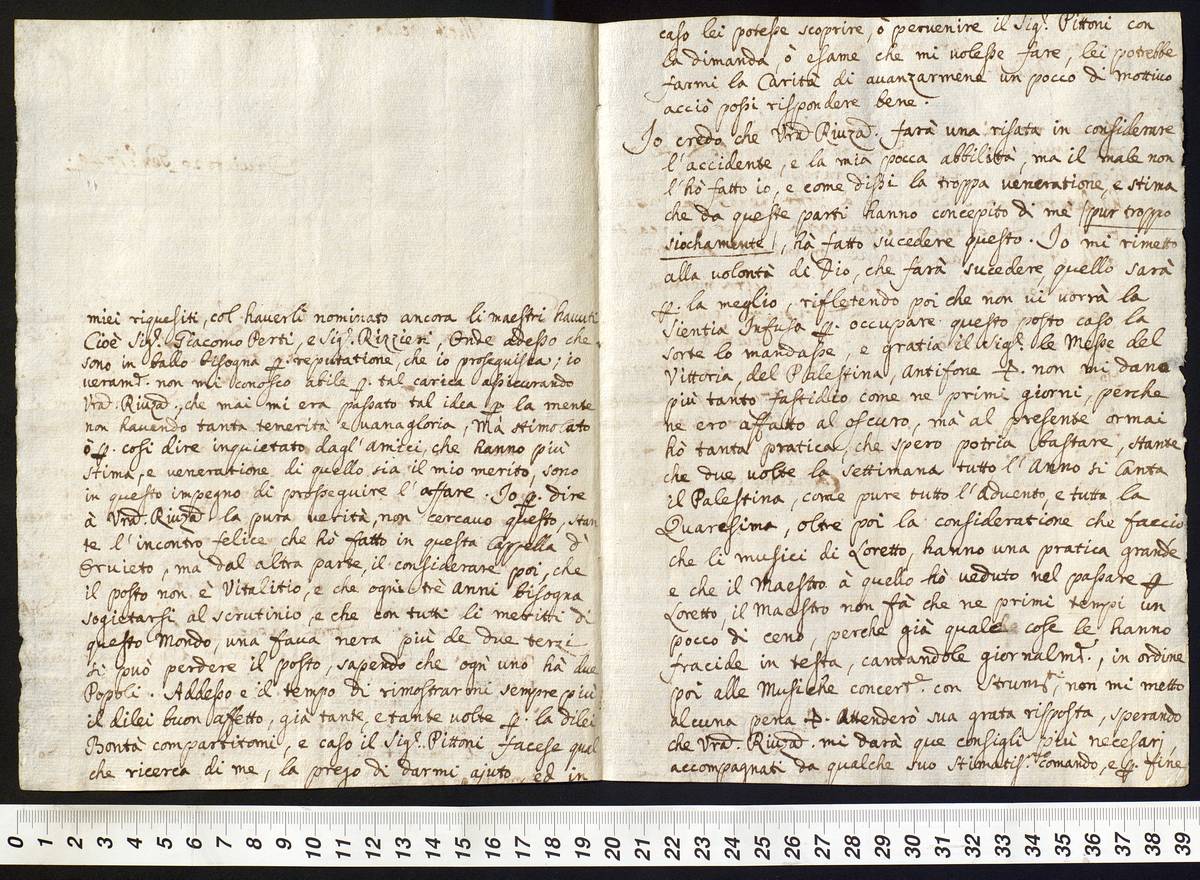 miei riquesiti, col haverli nominato ancora li maestri havuti
Cioè Sigr. Giacomo Perti, e Sigr. Rizzieri, Onde adesso che
sono in ballo bisogna p. reputatione, che io proseguisca; io
veramt. non mi conosco abile p. tal carica assicurando
Vrad. Riuzad., che mai mi era passato tal idea p. la mente
non havendo tanta temerità e vanagloria, Mà stimolato
ò p. cosi dire inquietato dagl' Amici, che hanno più
stima, e veneratione, di quello sia il mio merito, sono
in questo impegno di prosseguire l' affare. Io p. dire
à Vrad. Riuzad. la pura verità, non cercavo questo, stan
te l' incontro felice che hò fatto in questa Cappella d'
Orvieto, ma dal altra parte, il considerare poi, che
il posto non è Vitalitio, e che ogni trè anni bisogna
sogietarsi al scrutinio, e che con tutti li meritti di
questo Mondo, una fava nera più de due terzi
si può perdere il posto, sapendo che ogni uno hà due
Popoli. Addesso e il tempo di rimostrarmi sempre più
il dilei buon affetto, già tante, e tante volte p. la dilei
Bontà compartitomi, e caso il Sigr. Pittoni facese qual
che ricerca di me, la prego di darmi ajuto ed in
caso lei potesse scoprire, ò pervenire il Sigr. Pittoni con
la dimanda, ò esame che mi volesse fare, lei potrebbe
farmi la Carità di avanzarmene un pocco di mottivo
acciò possi rispondere bene.
Io credo che Vrad. Riuzad. farà una risata in considerare
l'accidente, e la mia pocca abbilità, ma il male non
l'hò fatto io, e come dissi la troppa veneratione, e stima
che da queste parti hanno concepito di mè (pur troppo
siochamente), hà fatto sucedere questo. Io mi rimetto
alla volontà di Dio, che farà sucedere quello sarà
p. la meglio, rifletendo poi che non vi vorrà la
Sientia Infusa p. occupare questo posto caso la
sorte lo mandasse, e gratia il Sigr. le Messe del
Vittoria, del Palestina, Antifone non mi dano
più tanto fastidio come ne primi giorni, perche
ne ero affatto al oscuro, mà al presente ormai
hò tanta pratica, che spero potria bastare, stante
che due volte la settimana tutto l'Anno si Canta
il Palestina, come pure tutto l'Advento, e tutta la
Quaresima, oltre poi la consideratione che faccio
che li musici di Loretto, hanno una pratica grande
e che il Maestro à quello hò veduto nel passare p.
Loretto, il Maestro non fà che ne primi tempi un
pocco di ceno, perche già quale cose le hanno
fracide in testa, cantandole giornalmt., in ordine
poi alle Musiche concerte. con Strumti. non mi metto
alcuna pena Attenderò sua grata risposta, sperando
che Vrad. Riuzad. mi darà que consigli più necesarj,
accompagnati da qualche suo stimatiss. comando, e p. fine